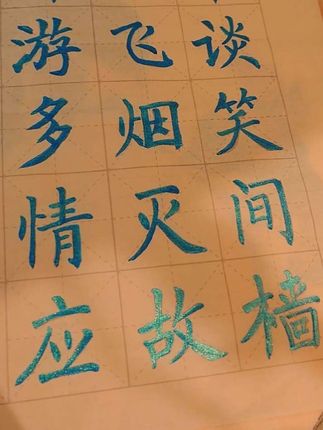 谈笑间樯
飞烟灭故
游多情应